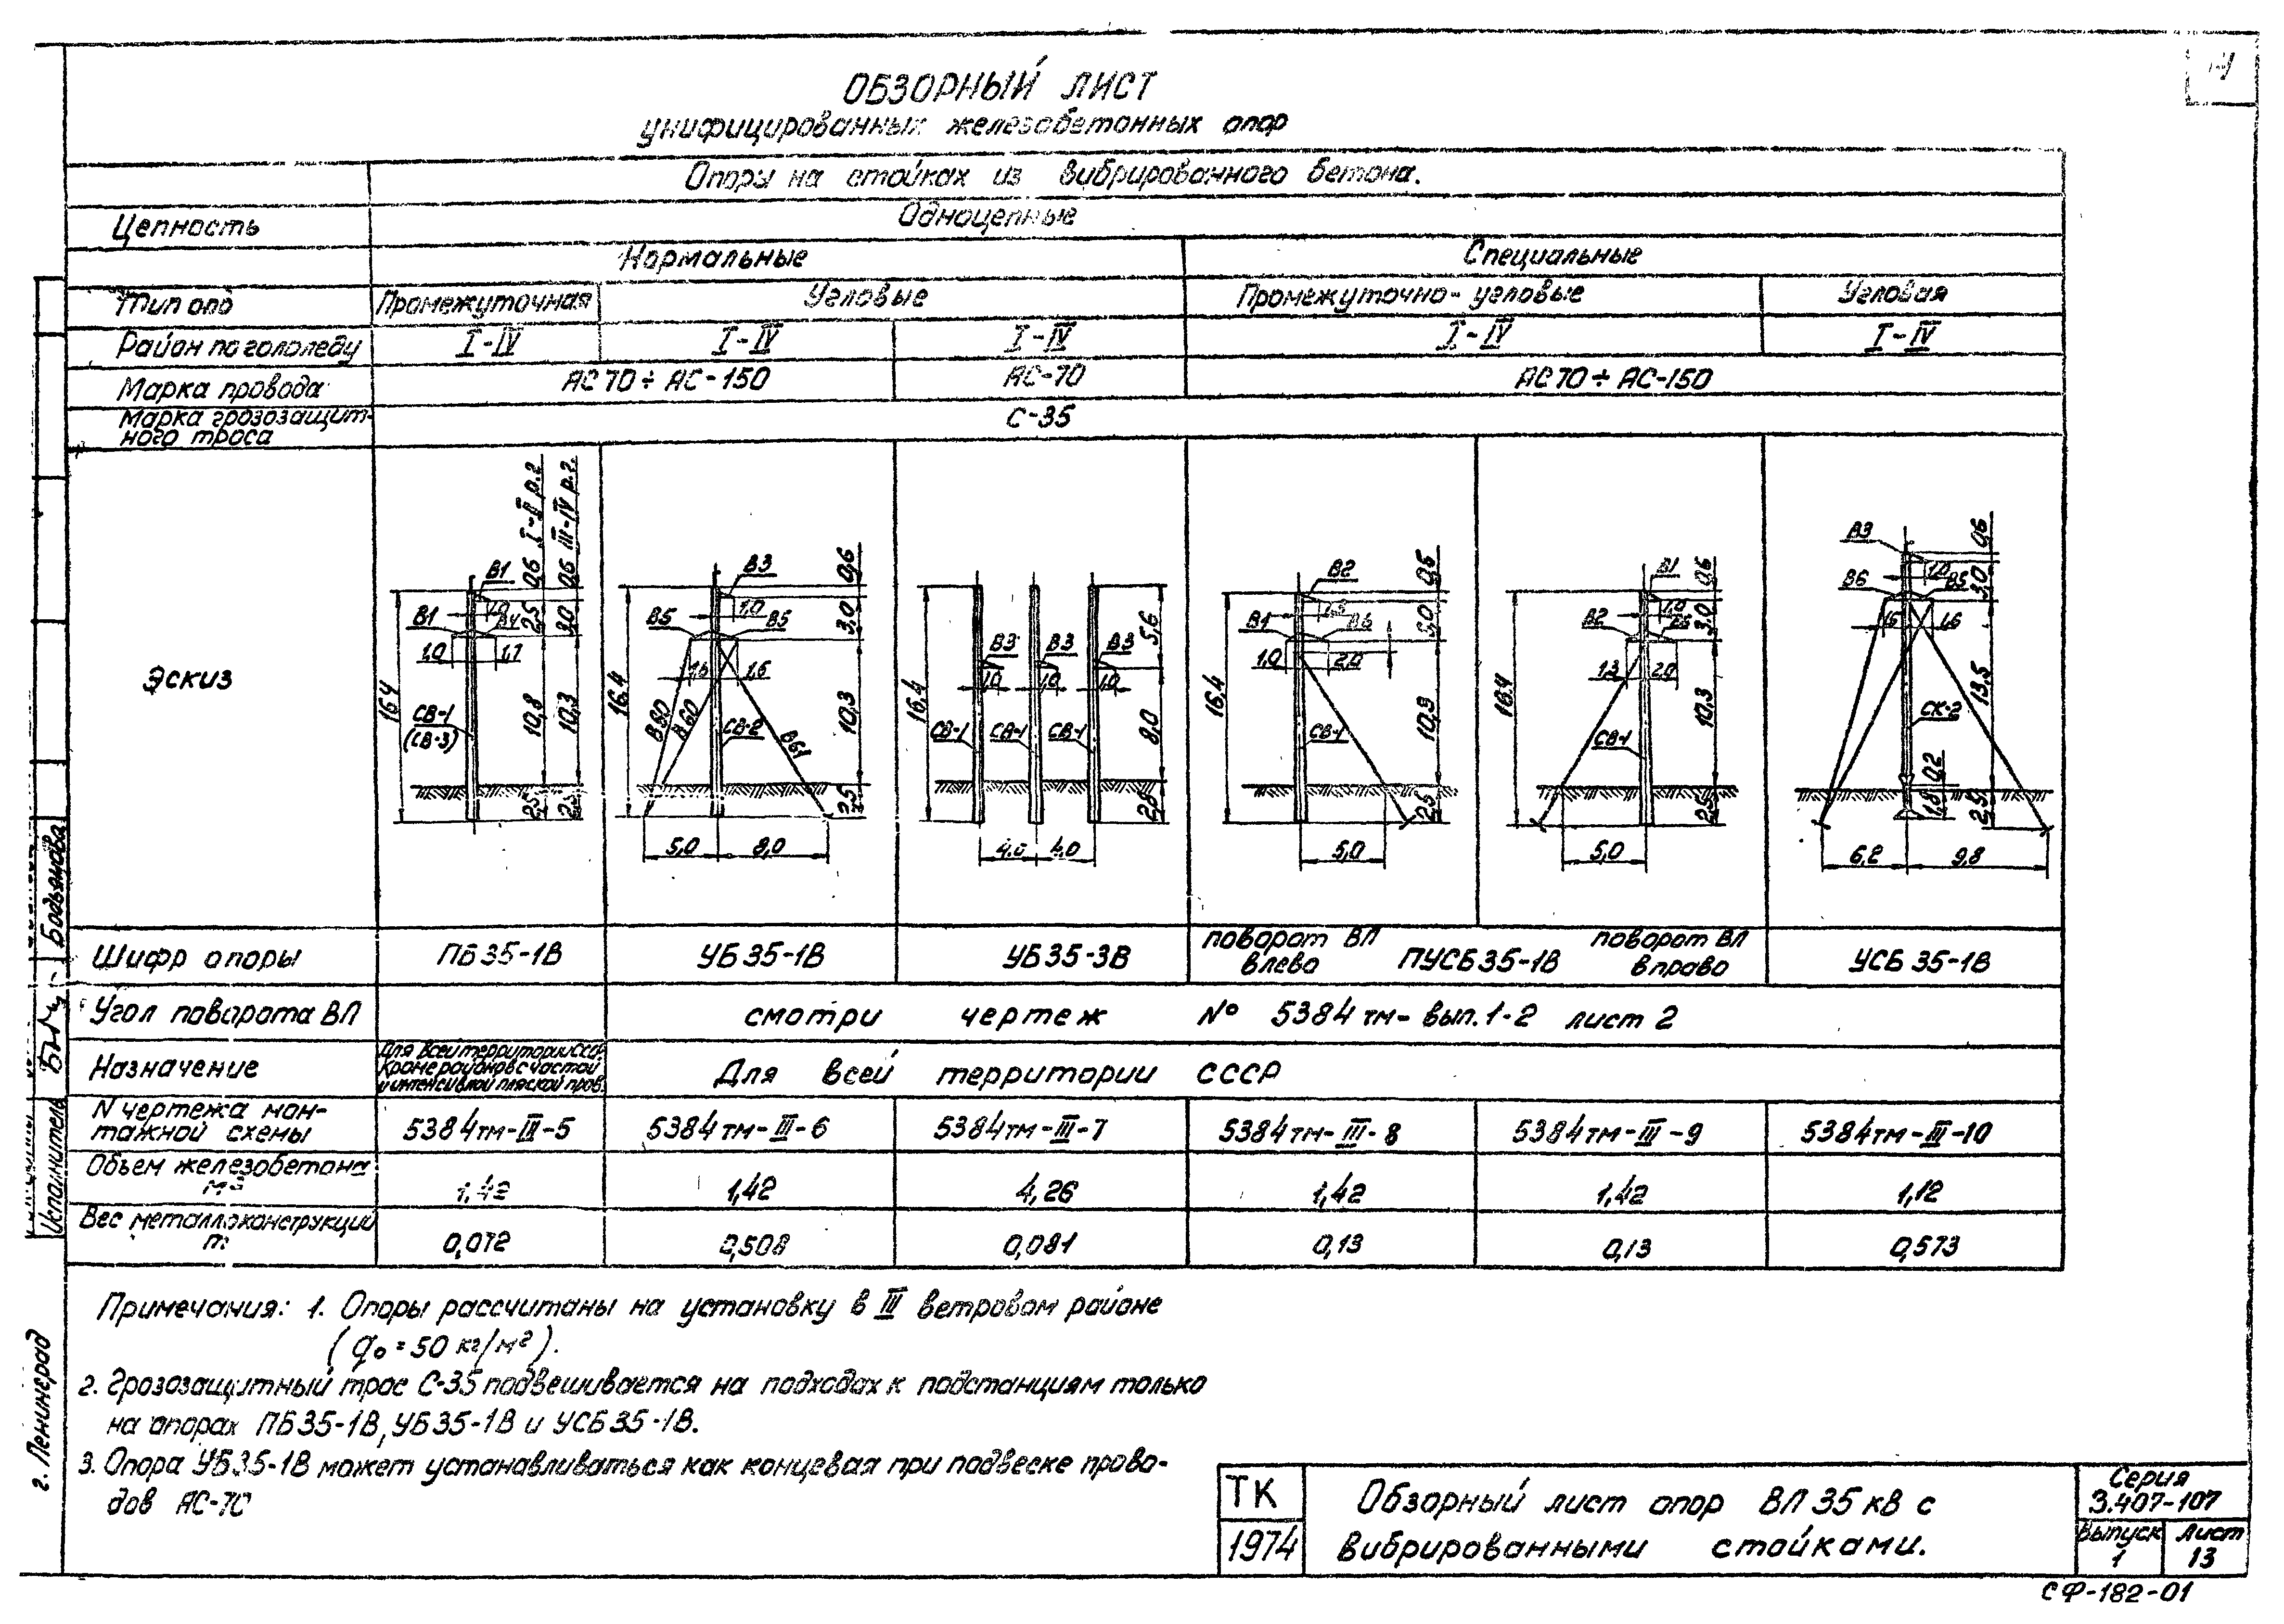 ОБЗОРНЫЙ ЛИСТ
унифицированных железобетонных опор
Опоры на стойках из вибрированного бетона.
Цепность
Одноцепные
Нормальные
Специальные
Тип опо
Промежуточная
Угловые
Промежуточно-угловые
Угловая
Район по гололеду
I-IV
I-IV
I-IV
I-IV
I-IV
Марка провода
АС70÷АС-150
АС-70
АС70÷АС-150
Марка грозозащит-
ного троса
С-35
Эскиз
I-II р.г
III-IV р.г.
0,6
0,6
В1
1,0
2,5
3,0
В1
1,0
1,7
16,4
СВ-1
(СВ-3)
10,8
10,3
2,5
2,5
В3
1,0
0,6
3,0
В5
В5
1,6
1,6
16,4
В60
СВ-2
В61
10,3
2,5
5,0
8,0
5,6
В3
В3
В3
1,0
1,0
1,0
16,4
СВ-1
СВ-1
СВ-1
8,0
2,5
4,0
4,0
В2
В1
В6
1,0
2,0
16,4
СВ-1
10,3
2,5
5,0
В1
0,6
1,0
3,0
В2
1,3
2,0
16,4
СВ-1
10,3
2,5
5,0
В3
0,6
1,0
3,0
В6
В5
1,6
1,6
13,5
СК-2
0,2
1,8
2,5
6,2
9,8
Шифр опоры
ПБ35-1В
УБ35-1В
УБ35-3В
поворот ВЛ
влево
ПУСБ35-1В
поворот ВЛ
вправо
УСБ 35-1В
Угол поворота ВЛ
смотри чертеж № 5384тм-вып.1-2 лист 2
Назначение
Для всей территории ССС
Кроме районов с частой
и интенсивной пляской пров.
Для всей территории СССР
N чертежа мон-
тажной схемы
5384тм-III-5
5384тм-III-6
5384тм-III-7
5384тм-III-8
5384тм-III-9
5384тм-III-10
Объем железобетона
м3
1,42
1,42
4,26
1,42
1,42
1,12
Вес металлоконструкций
т
0,072
0,508
0,081
0,13
0,13
0,573
Примечания: 1. Опоры рассчитаны на установку в III ветровом районе
(q₀=50 кг/м²).
2. Грозозащитный трос С-35 подвешивается на подходах к подстанциям только
на опорах ПБ35-1В, УБ35-1В и УСБ35-1В.
3. Опора УБ35-1В может устанавливаться как концевая при подвеске прово-
дов АС-70
ТК
1974
Обзорный лист опор ВЛ 35 кВ с
вибрированными стойками.
Серия
3.407-107
Выпуск
1
Лист
13
СФ-182-01
Бодьянова
Исполнитель
г. Ленинград